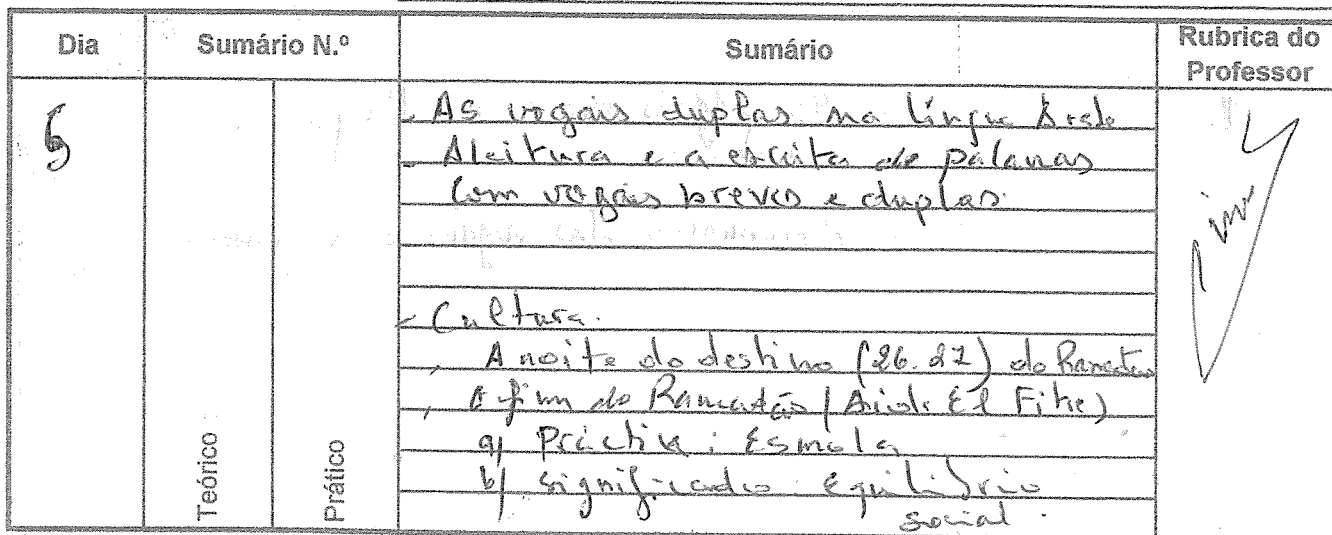 Dia Sumário N.º Sumário Rubrica do Professor
- As vogais duplas na língua Árabe
- A leitura e a escrita de palavras
com vogais breves e duplas.
- Cultura.
, A noite do destino (26.27) do Ramadão
, O fim do Ramadão (Aid El Fitre)
a) Práctica: Esmola
b) significado Equilíbrio
social.
Teórico
Prático